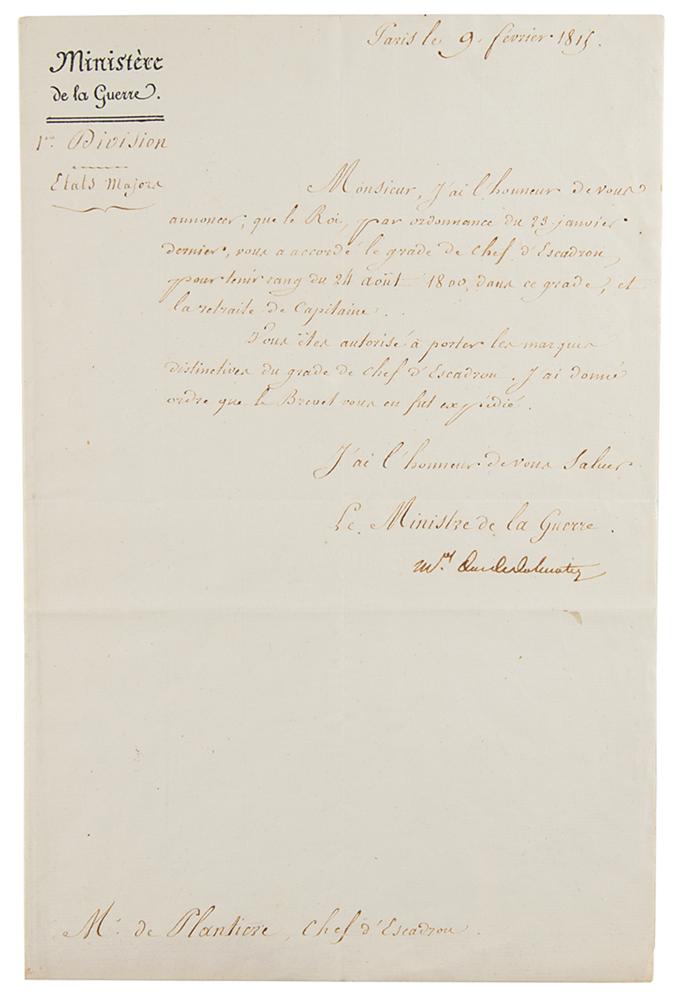 Paris le 9. février 1815.
Ministère
de la Guerre.
1re Division
Etats Majors
Monsieur, J'ai l'honneur de vous
annoncer, que le Roi, par ordonnance du 23 janvier
dernier, vous a accordé le grade de chef d'Escadron,
pour tenir rang du 24 août 1800, dans ce grade, et
la retraite de Capitaine.
Vous êtes autorisé à porter les marques
distinctives du grade de chef d'Escadron. J'ai donné
ordre que le Brevet vous en fut expédié.
J'ai l'honneur de vous saluer
Le Ministre de la Guerre.
Mal duc de Dalmatie
Mr. de Plantiere, chef d'Escadron.